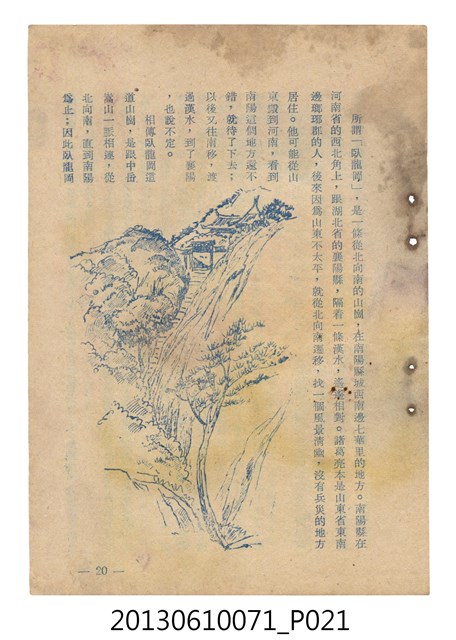 所謂「臥龍崗」，是一條從北向南的山崗，在南陽縣城西南邊七華里的地方。南陽縣在
河南省的西北角上，跟湖北省的襄陽縣，隔着一條漢水，相對。諸葛亮本是山東省東南
邊瑯琊郡的人，後來因爲山東不太平，就從北向南遷移，找一個風景清幽，沒有兵災的地方
居住。他可能從山
東遷到河南，看到
南陽這個地方還不
錯，就待了下去；
以後又往南移，渡
過漢水，到了襄陽
，也說不定。
相傳臥龍崗這
道山崗，是跟中岳
嵩山一脈相連，從
北向南，直到南陽
爲止；因此臥龍崗
— 20 —
20130610071_P021